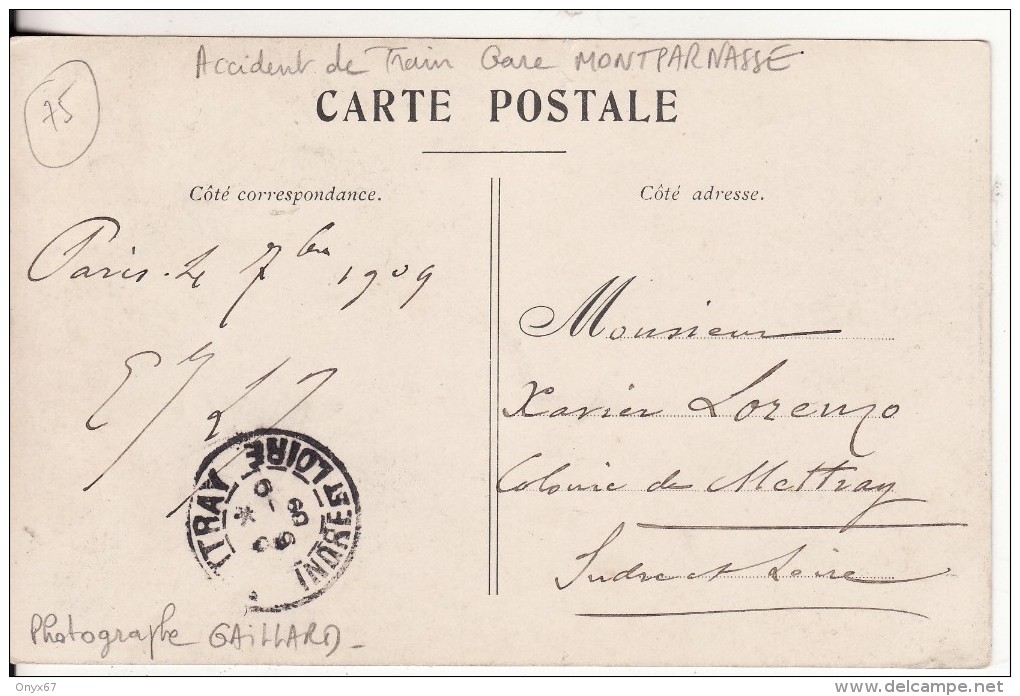 Accident de Train Gare MONTPARNASSE
75
CARTE POSTALE
Côté correspondance.
Côté adresse.
Paris. 4 7bre 1909
Monsieur
Xavier Lorenzo
Colonie de Mettray
Indre et Loire
TTRAY
INDRE ET LOIRE
Photographe GAILLARD
Onyx67
www.delcampe.net